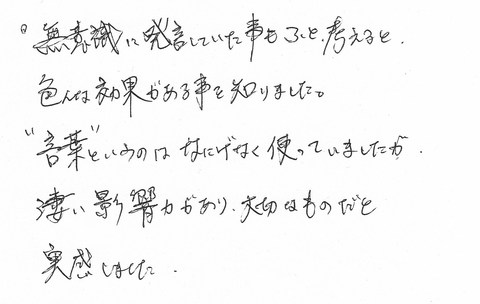 。無意識に発言していた事もふと、考えると、
色んな効果がある事を知りました。
"言葉"というのはなにげなく使っていましたが、
凄い影響力があり、大切なものだと
実感しました。